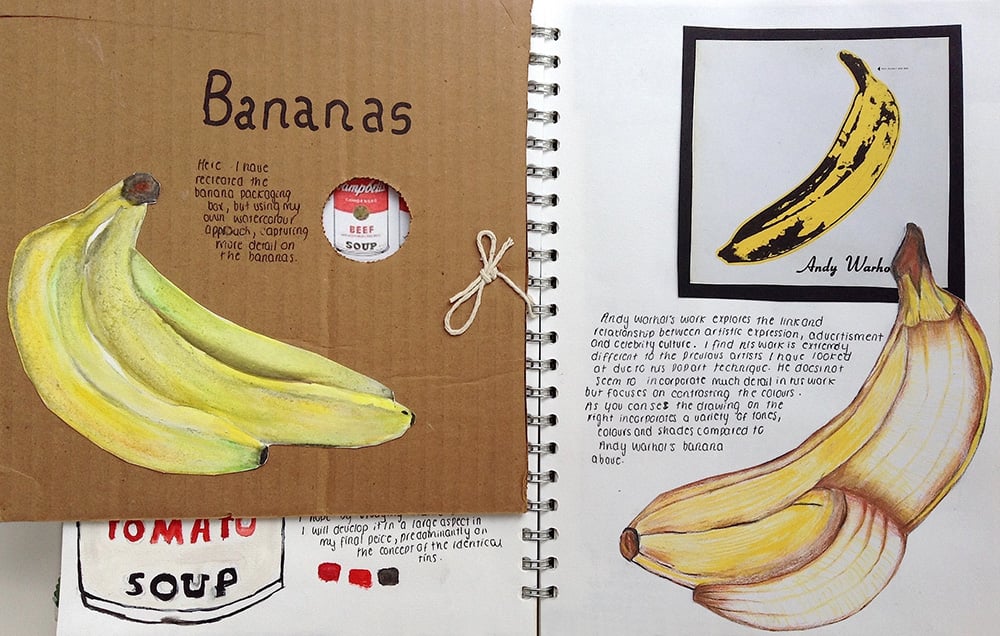 Bananas
Here I have
recreated the
banana packaging
box, but using my
own watercolour
approach, capturing
more detail on
the bananas.
Campbell's
CONDENSED
BEEF
SOUP
TOMATO
SOUP
I will develop it in a large aspect in
my final peice, predominantly on
the concept of the identical
tins.
Andy Warho
Andy Warhol's work explores the link and
relationship between artistic expression, advertisment
and celebrity culture. I find his work is extremely
different to the previous artists I have looked
at due to his popart technique. He does not
seem to incorporate much detail in his work
but focuses on contrasting the colours.
As you can see the drawing on the
right incorporates a variety of tones,
colours and shades compared to
Andy Warhol's banana
above.